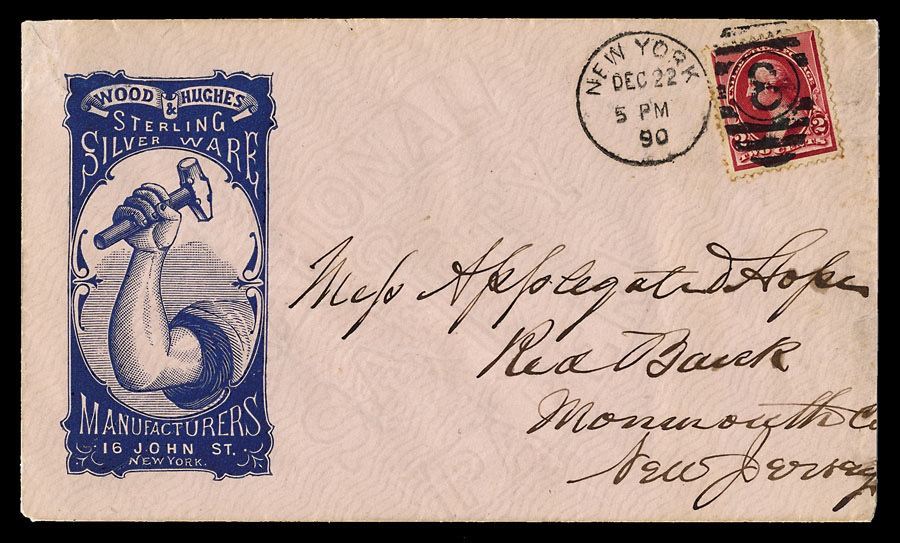 WOOD & HUGHES
STERLING
SILVER WARE
MANUFACTURERS
16 JOHN ST.
NEW YORK.
NEW YORK
DEC 22
5 PM
90
3
2 2
TWO CENTS
Mess Applegate & Hope
Red Bank
Monmouth Co
New Jersey